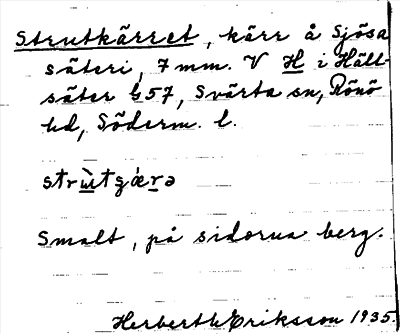 Strutkärret, kärr å Sjösa
säteri, 7 mm. V H i Hält-
säter G57, Svärta sn, Rönö
hd, Söderm. l.
Smalt, på sidorna berg.
Herbert Eriksson 1935.